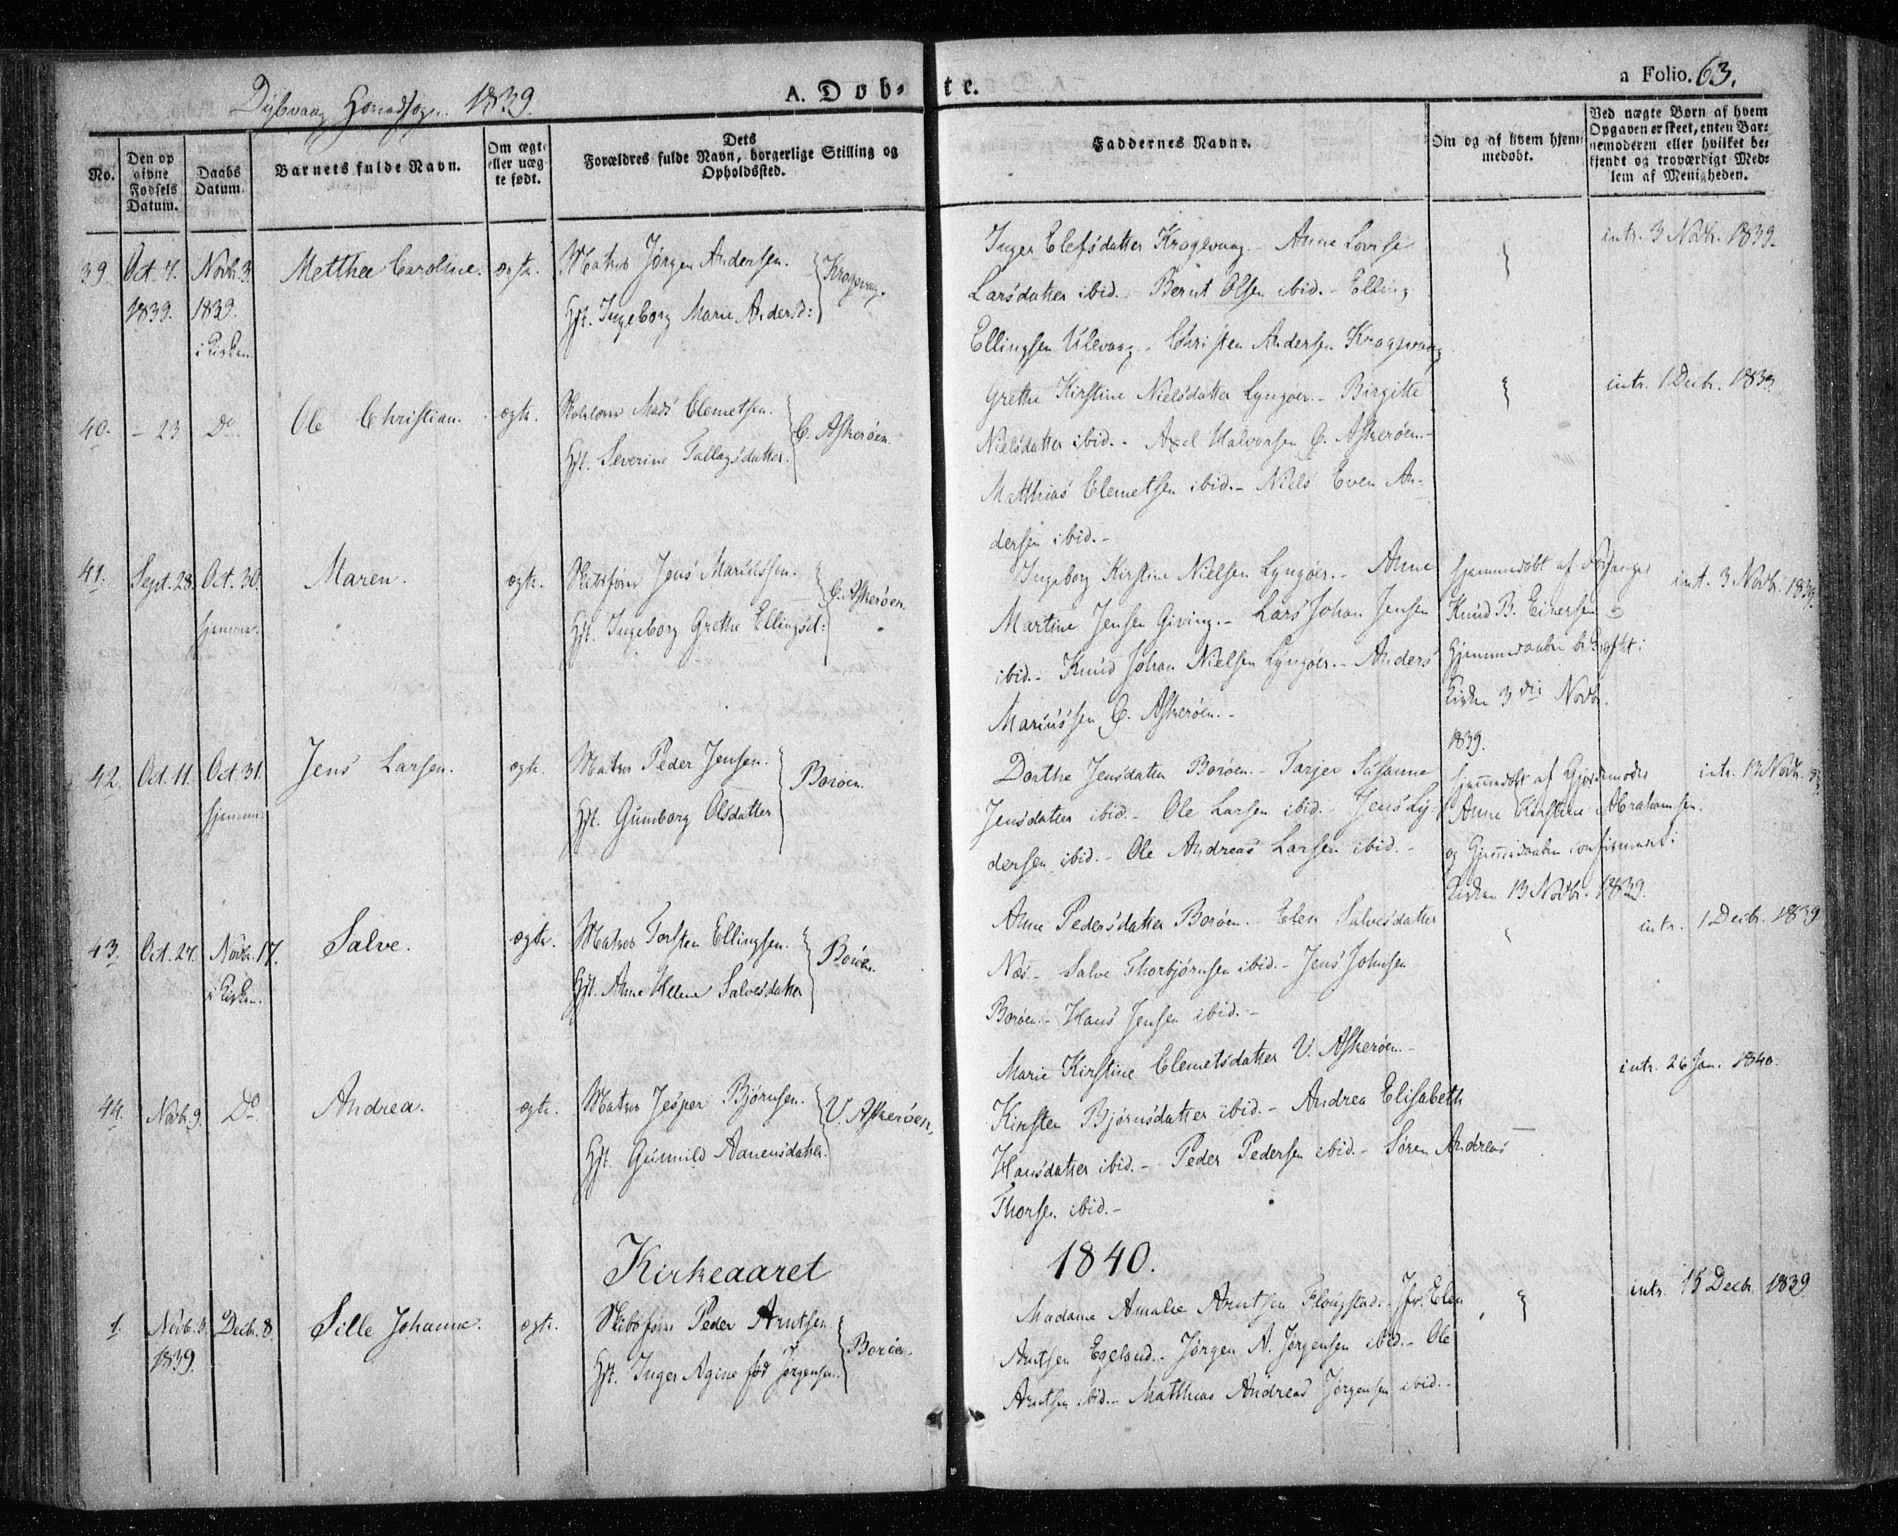 Dybvaag Hovedsogn. 1839.
A. Døb-te.
a Folio. 63.
No.
Den op
givne
Fødsels
Datum.
Daabs
Datum.
Barnets fulde Navn.
Om ægte
eller uæg
te født.
Dets
Forældres fulde Navn, borgerlige Stilling og
Opholdssted.
Faddernes Navne.
Om og af hvem hjem-
medøbt.
Ved uægte Børn af hvem
Opgaven er skeet, enten Bar-
nemoderen eller hvilket be-
kjendt og troværdigt Med-
lem af Menigheden.
39. Oct. 7. Novb. 3. Metthea Caroline. ægte. Matros Jørgen Andersen. Krogsvaag.
1839. 1839. Hst. Ingeborg Marie Andersd:
i Kirken
Inger Elefsdatter Krogsvaag - Anne Lovise
Larsdatter ibid. - Bernt Olsen ibid. - Elling
Ellingsen Ulevaag - Christen Andersen Krogsvaag
intr. 3 Novbr. 1839.
40. - 23 Do. Ole Christian. ægte. Mads Clemetsen. Ø. Askerøen.
Hst. Severine Tallagsdatter.
Grethe Kirstine Nielsdatter Lyngøer. - Birgitte
Nielsdatter ibid. - Axel Halvorsen Ø. Askerøen. -
Matthias Clemetsen ibid. - Niels Even An-
dersen ibid. -
intr. 1 Decbr. 1839.
41. Sept. 28. Oct. 30. Maren. ægte. Skibsføre Jens Mariussen. Ø. Askerøen.
hjemme. Hst. Ingeborg Grethe Ellingsd:
Ingeborg Kirstine Nielsen Lyngøer. - Anne
Martine Jensen Giving. - Lars Johan Jensen
ibid. - Knud Johan Nielsen Lyngøer. - Anders
Mariussen Ø. Askerøen. -
hjemmedøbt af
Knud B. Einersen
Hjemmedaaben bekræftet i
Kirken 3die Novbr.
1839.
int. 3 Novbr. 1839.
42. Oct. 11. Oct. 31. Jens Larsen. ægte. Matros Peder Jensen. Borøen.
hjemme. Hst. Gunborg Olsdatter
Dorthe Jensdatter Borøen. - Tarjer Susanne
Jensdatter ibid. - Ole Larsen ibid. - Jens Ly
dersen ibid. - Ole Andreas Larsen ibid. -
hjemmedøbt af Gjordemoder
Anne Kirstine Abrahamsen.
og Hjemmedaaben confirmeret i
Kirken 13 Novbr. 1839.
intr. 13 Novbr. 39
43. Oct. 27. Novbr. 17. Salve. ægte. Matros Torsten Ellingsen. Borøen.
i Kirken. Hst. Anne Helene Salvesdatter
Anne Pedersdatter Borøen. - Elen Salvesdatter
Næs. - Salve Thorbjørnsen ibid. - Jens Johnsen
Borøen. - Hans Jensen ibid. -
intr. 1 Decbr. 1839
44. Novbr. 9. Do Andrea. ægte. Matros Jesper Bjørnsen. V. Askerøen.
Hst. Gunnild Aanensdatter.
Marie Kirstine Clemetsdatter V. Askerøen. -
Kirsten Bjørnsdatter ibid. - Andrea Elisabeth
Hansdatter ibid. - Peder Pedersen ibid. - Søren Andreas
Thorsen ibid. -
intr. 26 Jan. 1840.
Kirkeaaret 1840.
1. Novb. Decbr. 8. Sille Johanne. ægte. Skibsføre Peder Arntsen. Borøen.
1839. Hst. Inger Agine fød Jørgensen.
Madame Amalie Arntsen Flougstad. - Jfr. Elen
Arntsen Egelsud. - Jørgen A. Jørgensen ibid. - Ole
Arntsen ibid. - Matthias Andreas Jørgensen ibid. -
intr. 15 Decbr. 1839